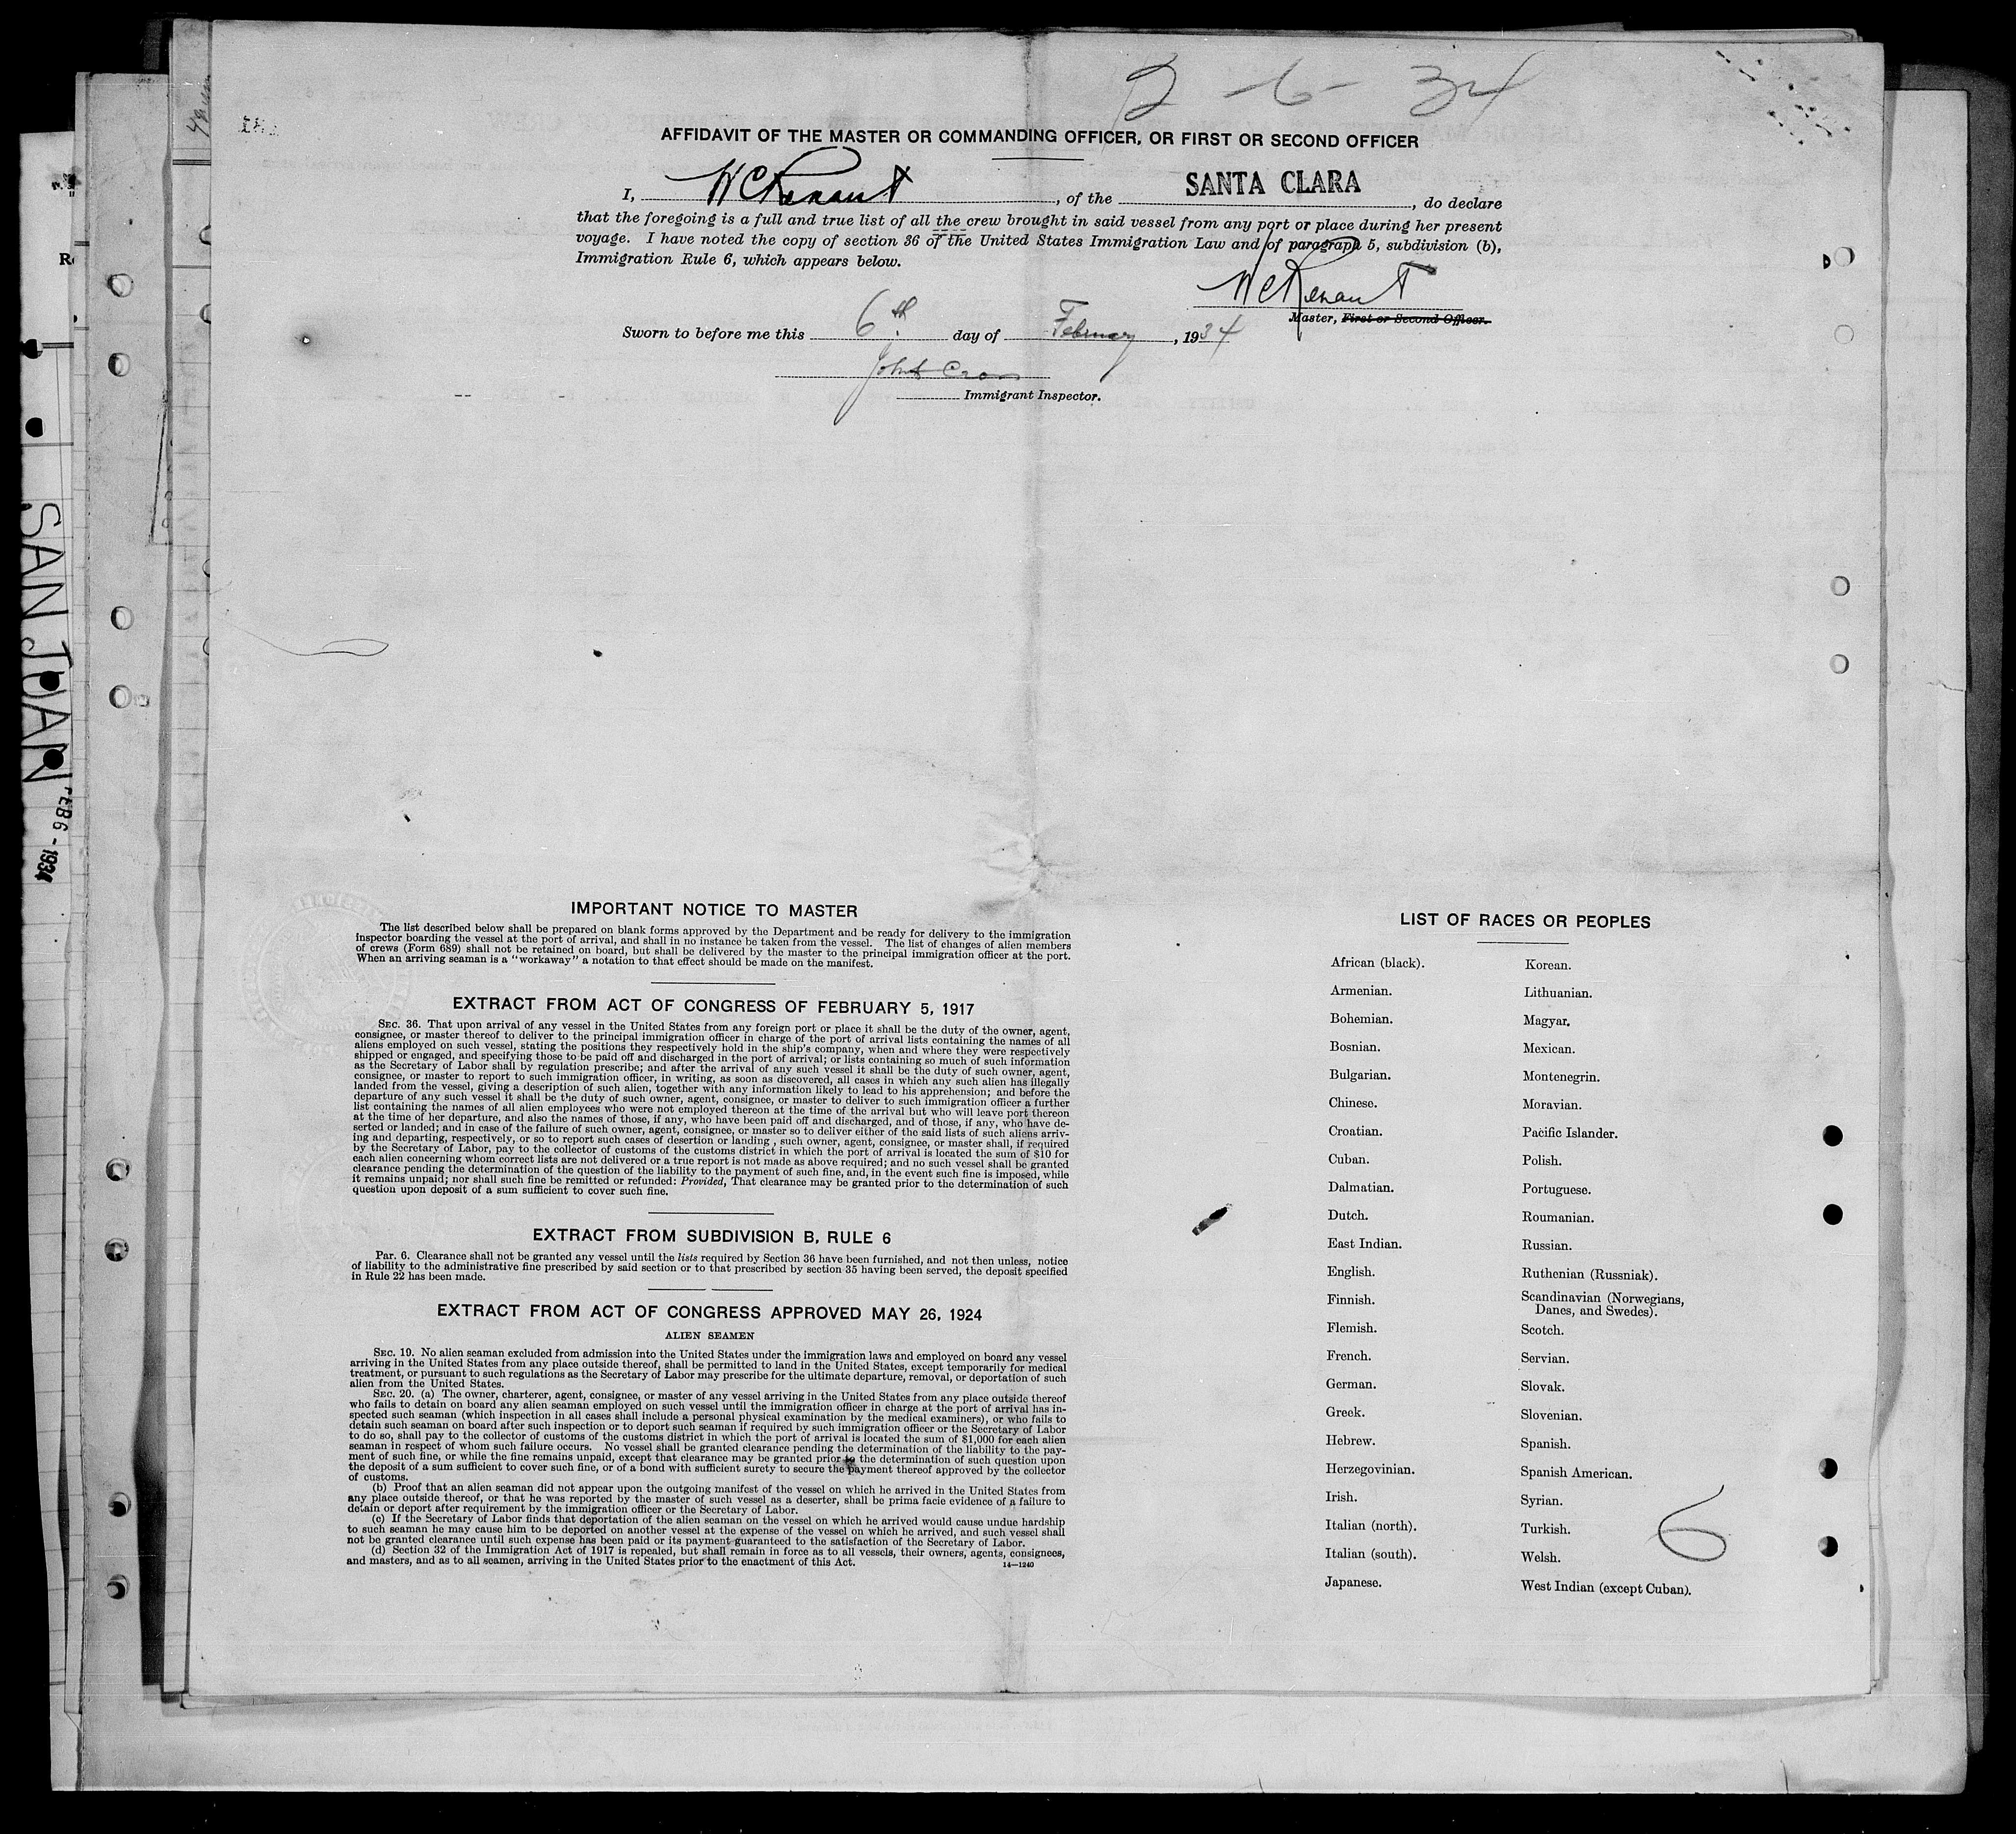 2-6-34
AFFIDAVIT OF THE MASTER OR COMMANDING OFFICER, OR FIRST OR SECOND OFFICER
I, W C Renaut, of the SANTA CLARA, do declare
that the foregoing is a full and true list of all the crew brought in said vessel from any port or place during her present
voyage. I have noted the copy of section 36 of the United States Immigration Law and of paragraph 5, subdivision (b),
Immigration Rule 6, which appears below.
W C Renaut
Master, First or Second Officer.
Sworn to before me this 6th day of February, 1934
Immigrant Inspector.
SAN JUAN
FEB 6 - 1934
IMPORTANT NOTICE TO MASTER
The list described below shall be prepared on blank forms approved by the Department and be ready for delivery to the immigration
inspector boarding the vessel at the port of arrival, and shall in no instance be taken from the vessel. The list of changes of alien members
of crews (Form 689) shall not be retained on board, but shall be delivered by the master to the principal immigration officer at the port.
When an arriving seaman is a "workaway" a notation to that effect should be made on the manifest.
EXTRACT FROM ACT OF CONGRESS OF FEBRUARY 5, 1917
SEC. 36. That upon arrival of any vessel in the United States from any foreign port or place it shall be the duty of the owner, agent,
consignee, or master thereof to deliver to the principal immigration officer in charge of the port of arrival lists containing the names of all
aliens employed on such vessel, stating the positions they respectively hold in the ship's company, when and where they were respectively
shipped or engaged, and specifying those to be paid off and discharged in the port of arrival; or lists containing so much of such information
as the Secretary of Labor shall by regulation prescribe; and after the arrival of any such vessel it shall be the duty of such owner, agent,
consignee, or master to report to such immigration officer, in writing, as soon as discovered, all cases in which any such alien has illegally
landed from the vessel, giving a description of such alien, together with any information likely to lead to his apprehension; and before the
departure of any such vessel it shall be the duty of such owner, agent, consignee, or master to deliver to such immigration officer a further
list containing the names of all alien employees who were not employed thereon at the time of the arrival but who will leave port thereon
at the time of her departure, and also the names of those, if any, who have been paid off and discharged, and of those, if any, who have de-
serted or landed; and in case of the failure of such owner, agent, consignee, or master so to deliver either of the said lists of such aliens arriv-
ing and departing, respectively, or so to report such cases of desertion or landing , such owner, agent, consignee, or master shall, if required
by the Secretary of Labor, pay to the collector of customs of the customs district in which the port of arrival is located the sum of $10 for
each alien concerning whom correct lists are not delivered or a true report is not made as above required; and no such vessel shall be granted
clearance pending the determination of the question of the liability to the payment of such fine, and, in the event such fine is imposed, while
it remains unpaid; nor shall such fine be remitted or refunded: Provided, That clearance may be granted prior to the determination of such
question upon deposit of a sum sufficient to cover such fine.
EXTRACT FROM SUBDIVISION B, RULE 6
Par. 6. Clearance shall not be granted any vessel until the lists required by Section 36 have been furnished, and not then unless, notice
of liability to the administrative fine prescribed by said section or to that prescribed by section 35 having been served, the deposit specified
in Rule 22 has been made.
EXTRACT FROM ACT OF CONGRESS APPROVED MAY 26, 1924
ALIEN SEAMEN
SEC. 19. No alien seaman excluded from admission into the United States under the immigration laws and employed on board any vessel
arriving in the United States from any place outside thereof, shall be permitted to land in the United States, except temporarily for medical
treatment, or pursuant to such regulations as the Secretary of Labor may prescribe for the ultimate departure, removal, or deportation of such
alien from the United States.
SEC. 20. (a) The owner, charterer, agent, consignee, or master of any vessel arriving in the United States from any place outside thereof
who fails to detain on board any alien seaman employed on such vessel until the immigration officer in charge at the port of arrival has in-
spected such seaman (which inspection in all cases shall include a personal physical examination by the medical examiners), or who fails to
detain such seaman on board after such inspection or to deport such seaman if required by such immigration officer or the Secretary of Labor
to do so, shall pay to the collector of customs of the customs district in which the port of arrival is located the sum of $1,000 for each alien
seaman in respect of whom such failure occurs. No vessel shall be granted clearance pending the determination of the liability to the pay-
ment of such fine, or while the fine remains unpaid, except that clearance may be granted prior to the determination of such question upon
the deposit of a sum sufficient to cover such fine, or of a bond with sufficient surety to secure the payment thereof approved by the collector
of customs.
(b) Proof that an alien seaman did not appear upon the outgoing manifest of the vessel on which he arrived in the United States from
any place outside thereof, or that he was reported by the master of such vessel as a deserter, shall be prima facie evidence of a failure to
detain or deport after requirement by the immigration officer or the Secretary of Labor.
(c) If the Secretary of Labor finds that deportation of the alien seaman on the vessel on which he arrived would cause undue hardship
to such seaman he may cause him to be deported on another vessel at the expense of the vessel on which he arrived, and such vessel shall
not be granted clearance until such expense has been paid or its payment guaranteed to the satisfaction of the Secretary of Labor.
(d) Section 32 of the Immigration Act of 1917 is repealed, but shall remain in force as to all vessels, their owners, agents, consignees,
and masters, and as to all seamen, arriving in the United States prior to the enactment of this Act.
14—1240
LIST OF RACES OR PEOPLES
African (black).
Armenian.
Bohemian.
Bosnian.
Bulgarian.
Chinese.
Croatian.
Cuban.
Dalmatian.
Dutch.
East Indian.
English.
Finnish.
Flemish.
French.
German.
Greek.
Hebrew.
Herzegovinian.
Irish.
Italian (north).
Italian (south).
Japanese.
Korean.
Lithuanian.
Magyar.
Mexican.
Montenegrin.
Moravian.
Pacific Islander.
Polish.
Portuguese.
Roumanian.
Russian.
Ruthenian (Russniak).
Scandinavian (Norwegians,
Danes, and Swedes).
Scotch.
Servian.
Slovak.
Slovenian.
Spanish.
Spanish American.
Syrian.
Turkish.
Welsh.
West Indian (except Cuban).
6